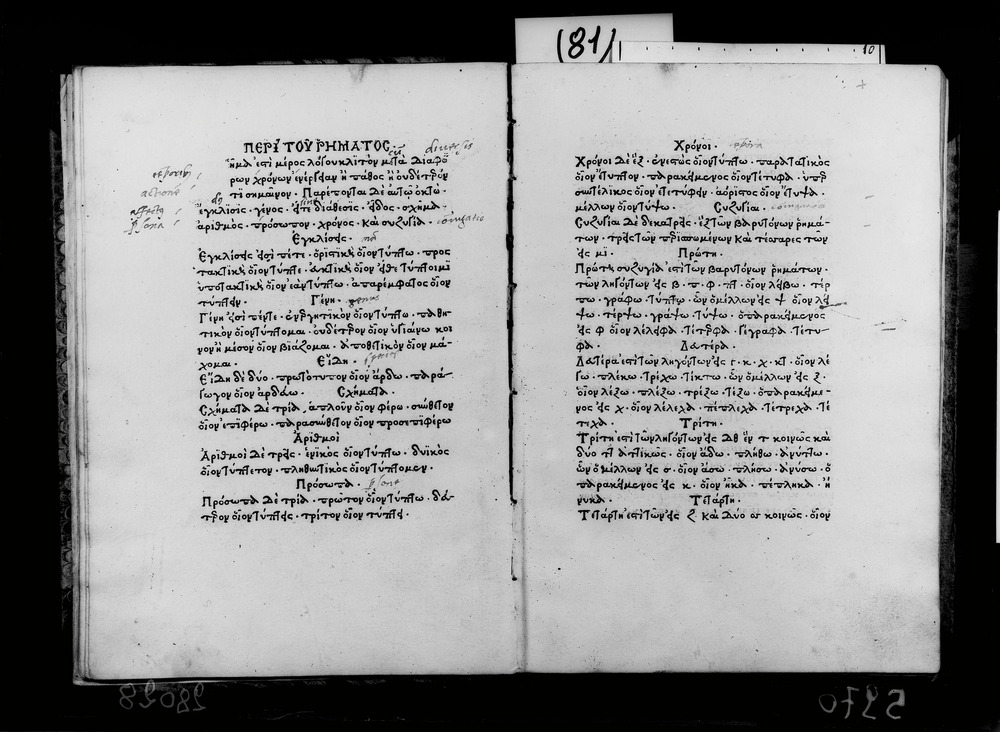 (81)
10
ΠΕΡῚ ΤΟΥ ῬΗΜΑΤΟΣ
ῥῆμα ἐστὶ μέρος λόγου κλιτὸν μετὰ διαφό
ρων χρόνων ἐνέργειαν ἢ πάθος ἢ οὐδέτερόν
τι σημαῖνον · Παρέπονται δὲ αὐτῷ ὀκτώ ·
ἔγκλισις · γένος · ἤτοι διάθεσις · εἶδος · σχῆμα
ἀριθμὸς · πρόσωπον · χρόνος · καὶ συζυγία ·
Ἐγκλίσεις ·
Ἐγκλίσεις εἰσὶ πέντε · ὁριστικὴ οἷον τύπτω · προς
τακτικὴ οἷον τύπτε · εὐκτικὴ οἷον εἴθε τύπτοιμι
ὑποτακτικὴ οἷον ἐὰν τύπτω · ἀπαρέμφατος οἷον
τύπτειν · Γένη ·
Γένη εἰσὶ πέντε · ἐνεργητικὸν οἷον τύπτω · παθη
τικὸν οἷον τύπτομαι · οὐδέτερον οἷον ὑγιαίνω κοι
νὸν ἢ μέσον οἷον βιάζομαι · ἀποθετικὸν οἷον μά-
χομαι · Εἴδη ·
Εἴδη δὲ δύο · πρωτότυπον οἷον ἄρδω · παρά-
γωγον οἷον ἀρδεύω · Σχήματα ·
Σχήματα δὲ τρία · ἁπλοῦν οἷον φέρω · σύνθετον
οἷον ἐπιφέρω · παρασύνθετον οἷον προσεπιφέρω
Ἀριθμοὶ
Ἀριθμοὶ δὲ τρεῖς · ἑνικὸς οἷον τύπτω · δυϊκὸς
οἷον τύπτετον · πληθυντικὸς οἷον τύπτομεν ·
Πρόσωπα ·
Πρόσωπα δὲ τρία · πρῶτον οἷον τύπτω · δεύ-
τερον οἷον τύπτεις · τρίτον οἷον τύπτει ·
Χρόνοι ·
Χρόνοι δὲ ἓξ · ἐνεστὼς οἷον τύπτω · παρατατικὸς
οἷον ἔτυπτον · παρακείμενος οἷον τέτυφα · ὑπερ
συντελικὸς οἷον ἐτετύφειν · ἀόριστος οἷον ἔτυψα ·
μέλλων οἷον τύψω · Συζυγία ·
Συζυγίαι δὲ δεκατρεῖς · ἓξ τῶν βαρυτόνων ῥημά-
των · τρεῖς τῶν περισπωμένων καὶ τέσσαρες τῶν
εἰς μι · Πρώτη ·
Πρώτη συζυγία ἐστὶ τῶν βαρυτόνων ῥημάτων ·
τῶν ληγόντων εἰς β · π · φ · πτ · οἷον λείβω · τέρ
πω · γράφω · τύπτω · ὧν ὁ μέλλων εἰς ψ · οἷον λεί
ψω · τέρψω · γράψω · τύψω · ὁ παρακείμενος
εἰς φ οἷον λέλειφα · τέτερφα · γέγραφα · τέτυ-
φα · Δευτέρα ·
Δευτέρα ἐστὶ τῶν ληγόντων εἰς γ · κ · χ · κτ · οἷον λέ
γω · πλέκω · τρέχω · τίκτω · ὧν ὁ μέλλων εἰς ξ ·
οἷον λέξω · πλέξω · τρέξω · τέξω · ὁ παρακείμε-
νος εἰς χ · οἷον λέλεχα · πέπλεχα · τέτρεχα · τέ
τεχα · Τρίτη ·
Τρίτη ἐστὶ τῶν ληγόντων εἰς δ θ ἓν τ κοινῶς καὶ
δύο ττ ἀττικῶς · οἷον ᾄδω · πλήθω · ἀνύττω ·
ὧν ὁ μέλλων εἰς σ · οἷον ᾄσω · πλήσω · ἀνύσω · ὁ
παρακείμενος εἰς κ · οἷον ᾖκα · πέπληκα · ἤ
νυκα · Τετάρτη ·
Τετάρτη ἐστὶ τῶν εἰς ζ · καὶ δύο σσ κοινῶς · οἷον
28028
5970